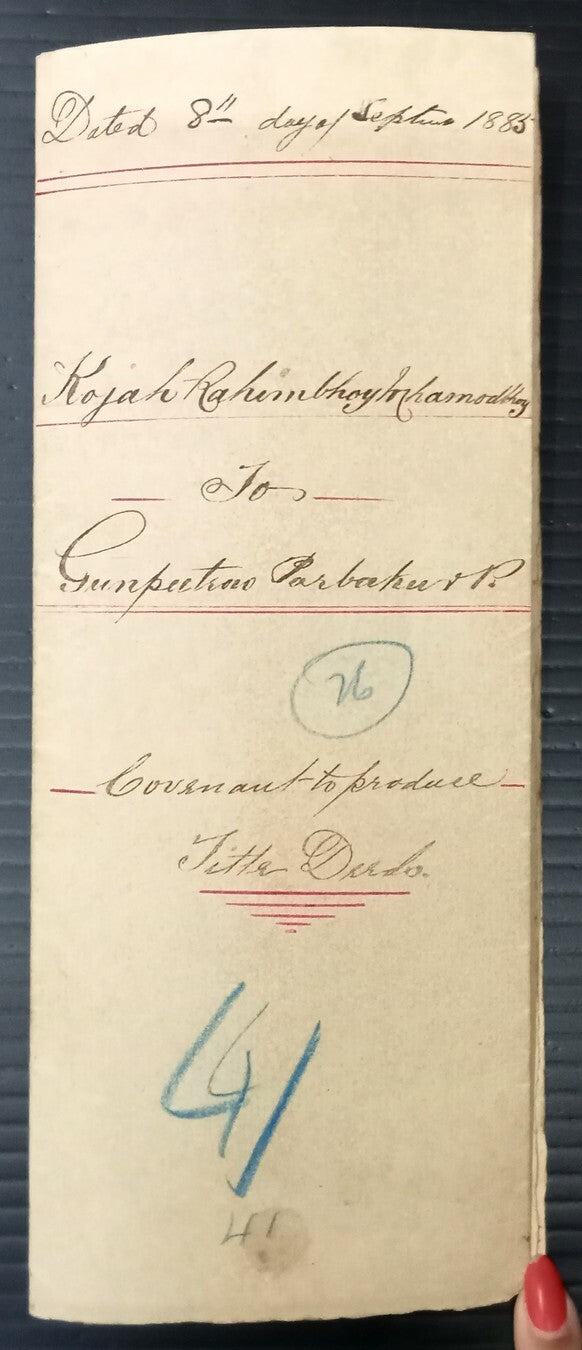 Dated 8th day of Septm 1885
Kojah Rahimbhoy
To
Gunputrao Parbaker & R.
26
Covenant to produce
Title Deeds.
4
41